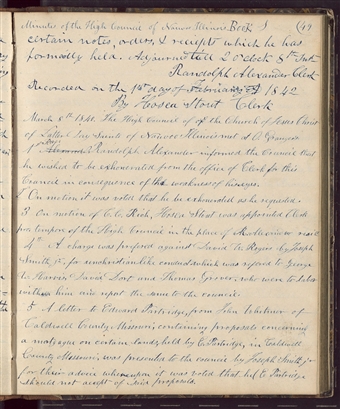 Minutes of the High Council of Nauvoo Illinois Book 1 (49
certain notes, orders, & receipts which he has
formerly held. Adjourned till 2 o'clock 8th Inst
Randolph Alexander Clerk
Recorded on the 1st day of February AD 1842
By Hosea Stout Clerk
March 8th 1840. The High Council of the Church of Jesus Christ
of Latter day Saints of Nauvoo Illinois met at
Randolph Alexander informed the Council that
he wished to be exhonerated from the office of Clerk for this
Council in consequence of the weakness of his eyes.
On motion, it was voted that he be exhonerated as he requested.
3 On motion of C. C. Rich, Hosea Stout was appointed Clerk
pro tempore of the High Council in the place of
4th A charge was prefered against David W. Rogers by Joseph
Smith jr, for unchristianlike conduct which was refered to George
W. Harris David Dort and Thomas Grover, who were to labor
with him and report the same to the council.
5 A letter to Edward Partridge, from John Whitmer of
Caldwell County, Missouri, containing proposals concerning
a mortgage on certain lands, held by E. Partridge, in Caldwell
County Missouri, was presented to the council by Joseph Smith, jr
for their advice whereupon it was voted that E. Partridge
should not accept of said proposals.